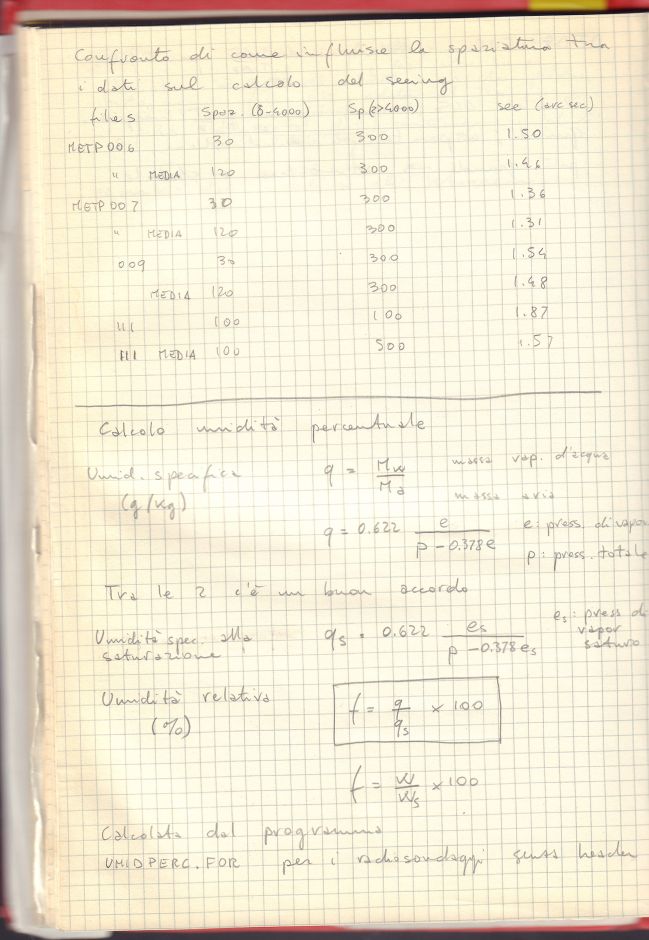 Confronto di come influisce la spaziatura tra
i dati sul calcolo del seeing
files Spaz. (0-4000) Sp(z>4000) see (arc sec)
METP006 30 300 1.50
" MEDIA 120 300 1.46
METP007 30 300 1.36
" MEDIA 120 300 1.31
009 30 300 1.54
MEDIA 120 300 1.48
111 100 100 1.87
111 MEDIA 100 500 1.57
Calcolo umidità percentuale
Umid. specifica q = Mw/Ma massa vap. d'acqua
(g/kg) massa aria
q = 0.622 e/(p - 0.378e) e: press. di vapor
p: press. totale
Tra le 2 c'è un buon accordo
Umidità spec. alla qs = 0.622 es/(p - 0.378es) es: press di
saturazione vapor
saturo
Umidità relativa f = q/qs × 100
(%)
f = w/ws × 100
Calcolata dal programma
UMIDPERC.FOR per i radiosondaggi senza header